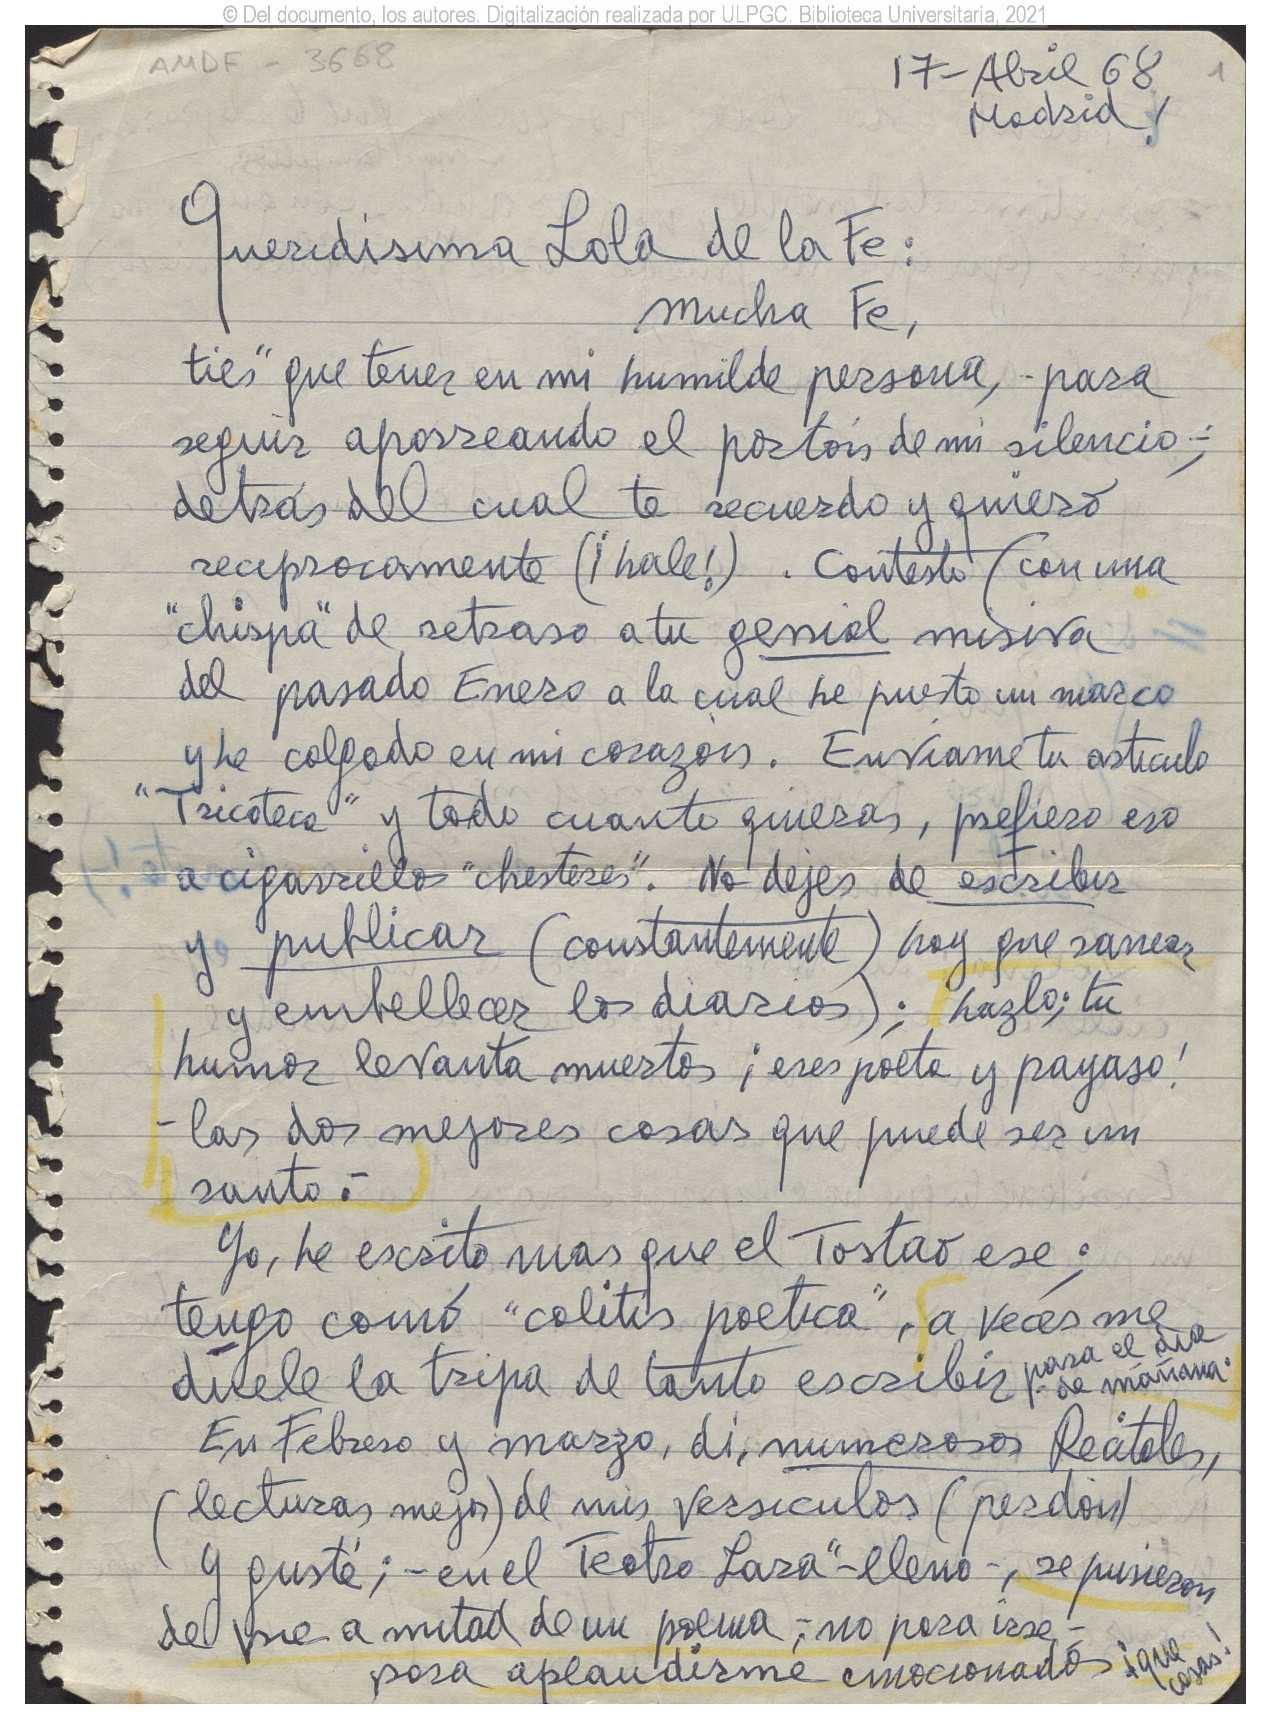 © Del documento, los autores. Digitalización realizada por ULPGC. Biblioteca Universitaria, 2021
AMDF - 3668
17-Abril 68
1
Madrid!
Queridisima Lola de la Fe:
Mucha Fe,
ties" que tener en mi humilde persona, - para
seguir aporreando el portón de mi silencio -;
detrás del cual te recuerdo y quiero
reciprocamente (¡hale!). Contesto (con una
"chispa" de retraso a tu genial misiva
del pasado Enero a la cual he puesto un marco
y he colgado en mi corazón. Envíame tu articulo
"Tricoteca" y todo cuanto quieras, prefiero eso
a cigarrillos "chesteres". No dejes de escribir
y publicar (constantemente) hay que sanear
y embellecer los diarios); hazlo; tu
humor levanta muertos ¡eres poeta y payaso!
- las dos mejores cosas que puede ser un
santo.-
Yo, he escrito mas que el Tostao ese;
tengo como "colitis poetica", a veces me
duele la tripa de tanto escribir para el dia
de mañana.
En Febrero y marzo, di, numerosos Recitales,
(lecturas mejor) de mis versiculos (perdón)
y gusté; - en el Teatro Lara" - lleno -, se pusieron
de pie a mitad de un poema, - no para irse -
para aplaudirme emocionados ¡que
cosas!